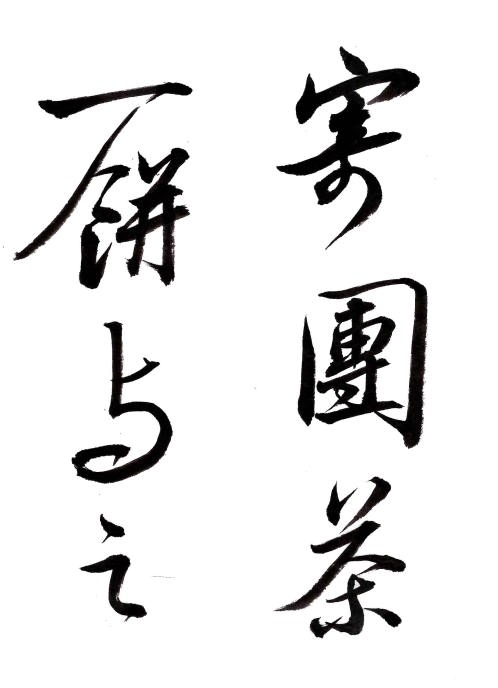 寄團茶
一餅与之